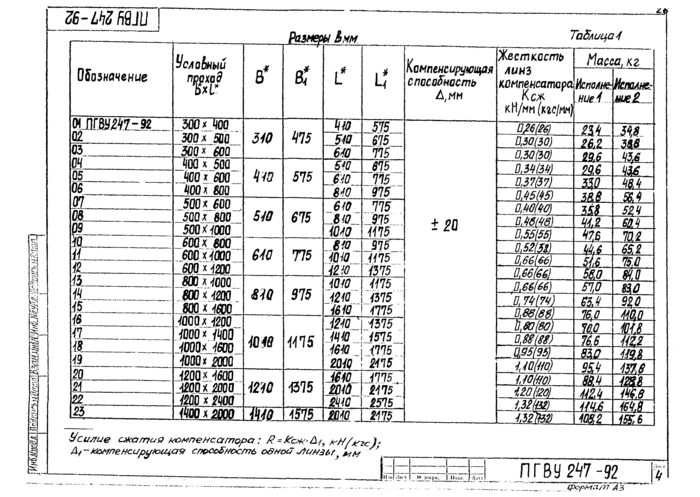 ПГВУ 247-92
26
Размеры в мм
Таблица 1
Обозначение | Условный проход B×L* | B* | B1* | L* | L1* | Компенсирующая способность Δ, мм | Жесткость линз компенсатора Ксж кН/мм (кгс/мм) | Масса, кг
Исполнение 1 | Исполнение 2
01 ПГВУ 247-92 | 300 × 400 | 310 | 475 | 410 | 575 | ± 20 | 0,26(26) | 23,4 | 34,8
02 | 300 × 500 | 510 | 675 | 0,30(30) | 26,2 | 38,8
03 | 300 × 600 | 610 | 775 | 0,30(30) | 29,6 | 43,6
04 | 400 × 500 | 410 | 575 | 510 | 675 | 0,34(34) | 29,6 | 43,6
05 | 400 × 600 | 610 | 775 | 0,37(37) | 33,0 | 48,4
06 | 400 × 800 | 810 | 975 | 0,45(45) | 38,8 | 56,4
07 | 500 × 600 | 510 | 675 | 610 | 775 | 0,40(40) | 35,8 | 52,4
08 | 500 × 800 | 810 | 975 | 0,48(48) | 41,2 | 60,4
09 | 500 × 1000 | 1010 | 1175 | 0,55(55) | 47,6 | 70,2
10 | 600 × 800 | 610 | 775 | 810 | 975 | 0,52(52) | 44,6 | 65,2
11 | 600 × 1000 | 1010 | 1175 | 0,66(66) | 51,6 | 75,0
12 | 600 × 1200 | 1210 | 1375 | 0,66(66) | 58,0 | 84,0
13 | 800 × 1000 | 810 | 975 | 1010 | 1175 | 0,66(66) | 57,0 | 83,0
14 | 800 × 1200 | 1210 | 1375 | 0,74(74) | 63,4 | 92,0
15 | 800 × 1600 | 1610 | 1775 | 0,88(88) | 76,0 | 110,0
16 | 1000 × 1200 | 1010 | 1175 | 1210 | 1375 | 0,80(80) | 70,0 | 101,8
17 | 1000 × 1400 | 1410 | 1575 | 0,88(88) | 76,6 | 112,2
18 | 1000 × 1600 | 1610 | 1775 | 0,95(95) | 83,0 | 119,8
19 | 1000 × 2000 | 2010 | 2175 | 1,10(110) | 95,4 | 137,6
20 | 1200 × 1600 | 1210 | 1375 | 1610 | 1775 | 1,10(110) | 88,4 | 128,8
21 | 1200 × 2000 | 2010 | 2175 | 1,20(120) | 112,4 | 146,6
22 | 1200 × 2400 | 2410 | 2575 | 1,32(132) | 114,6 | 164,8
23 | 1400 × 2000 | 1410 | 1575 | 2010 | 2175 | 1,32(132) | 108,2 | 155,6
Усилие сжатия компенсатора: R=Ксж·Δ1, кН(кгс);
Δ1-компенсирующая способность одной линзы, мм
ПГВУ 247-92
Лист
4
Изм Лист № докум. Подп. Дата
Формат А3